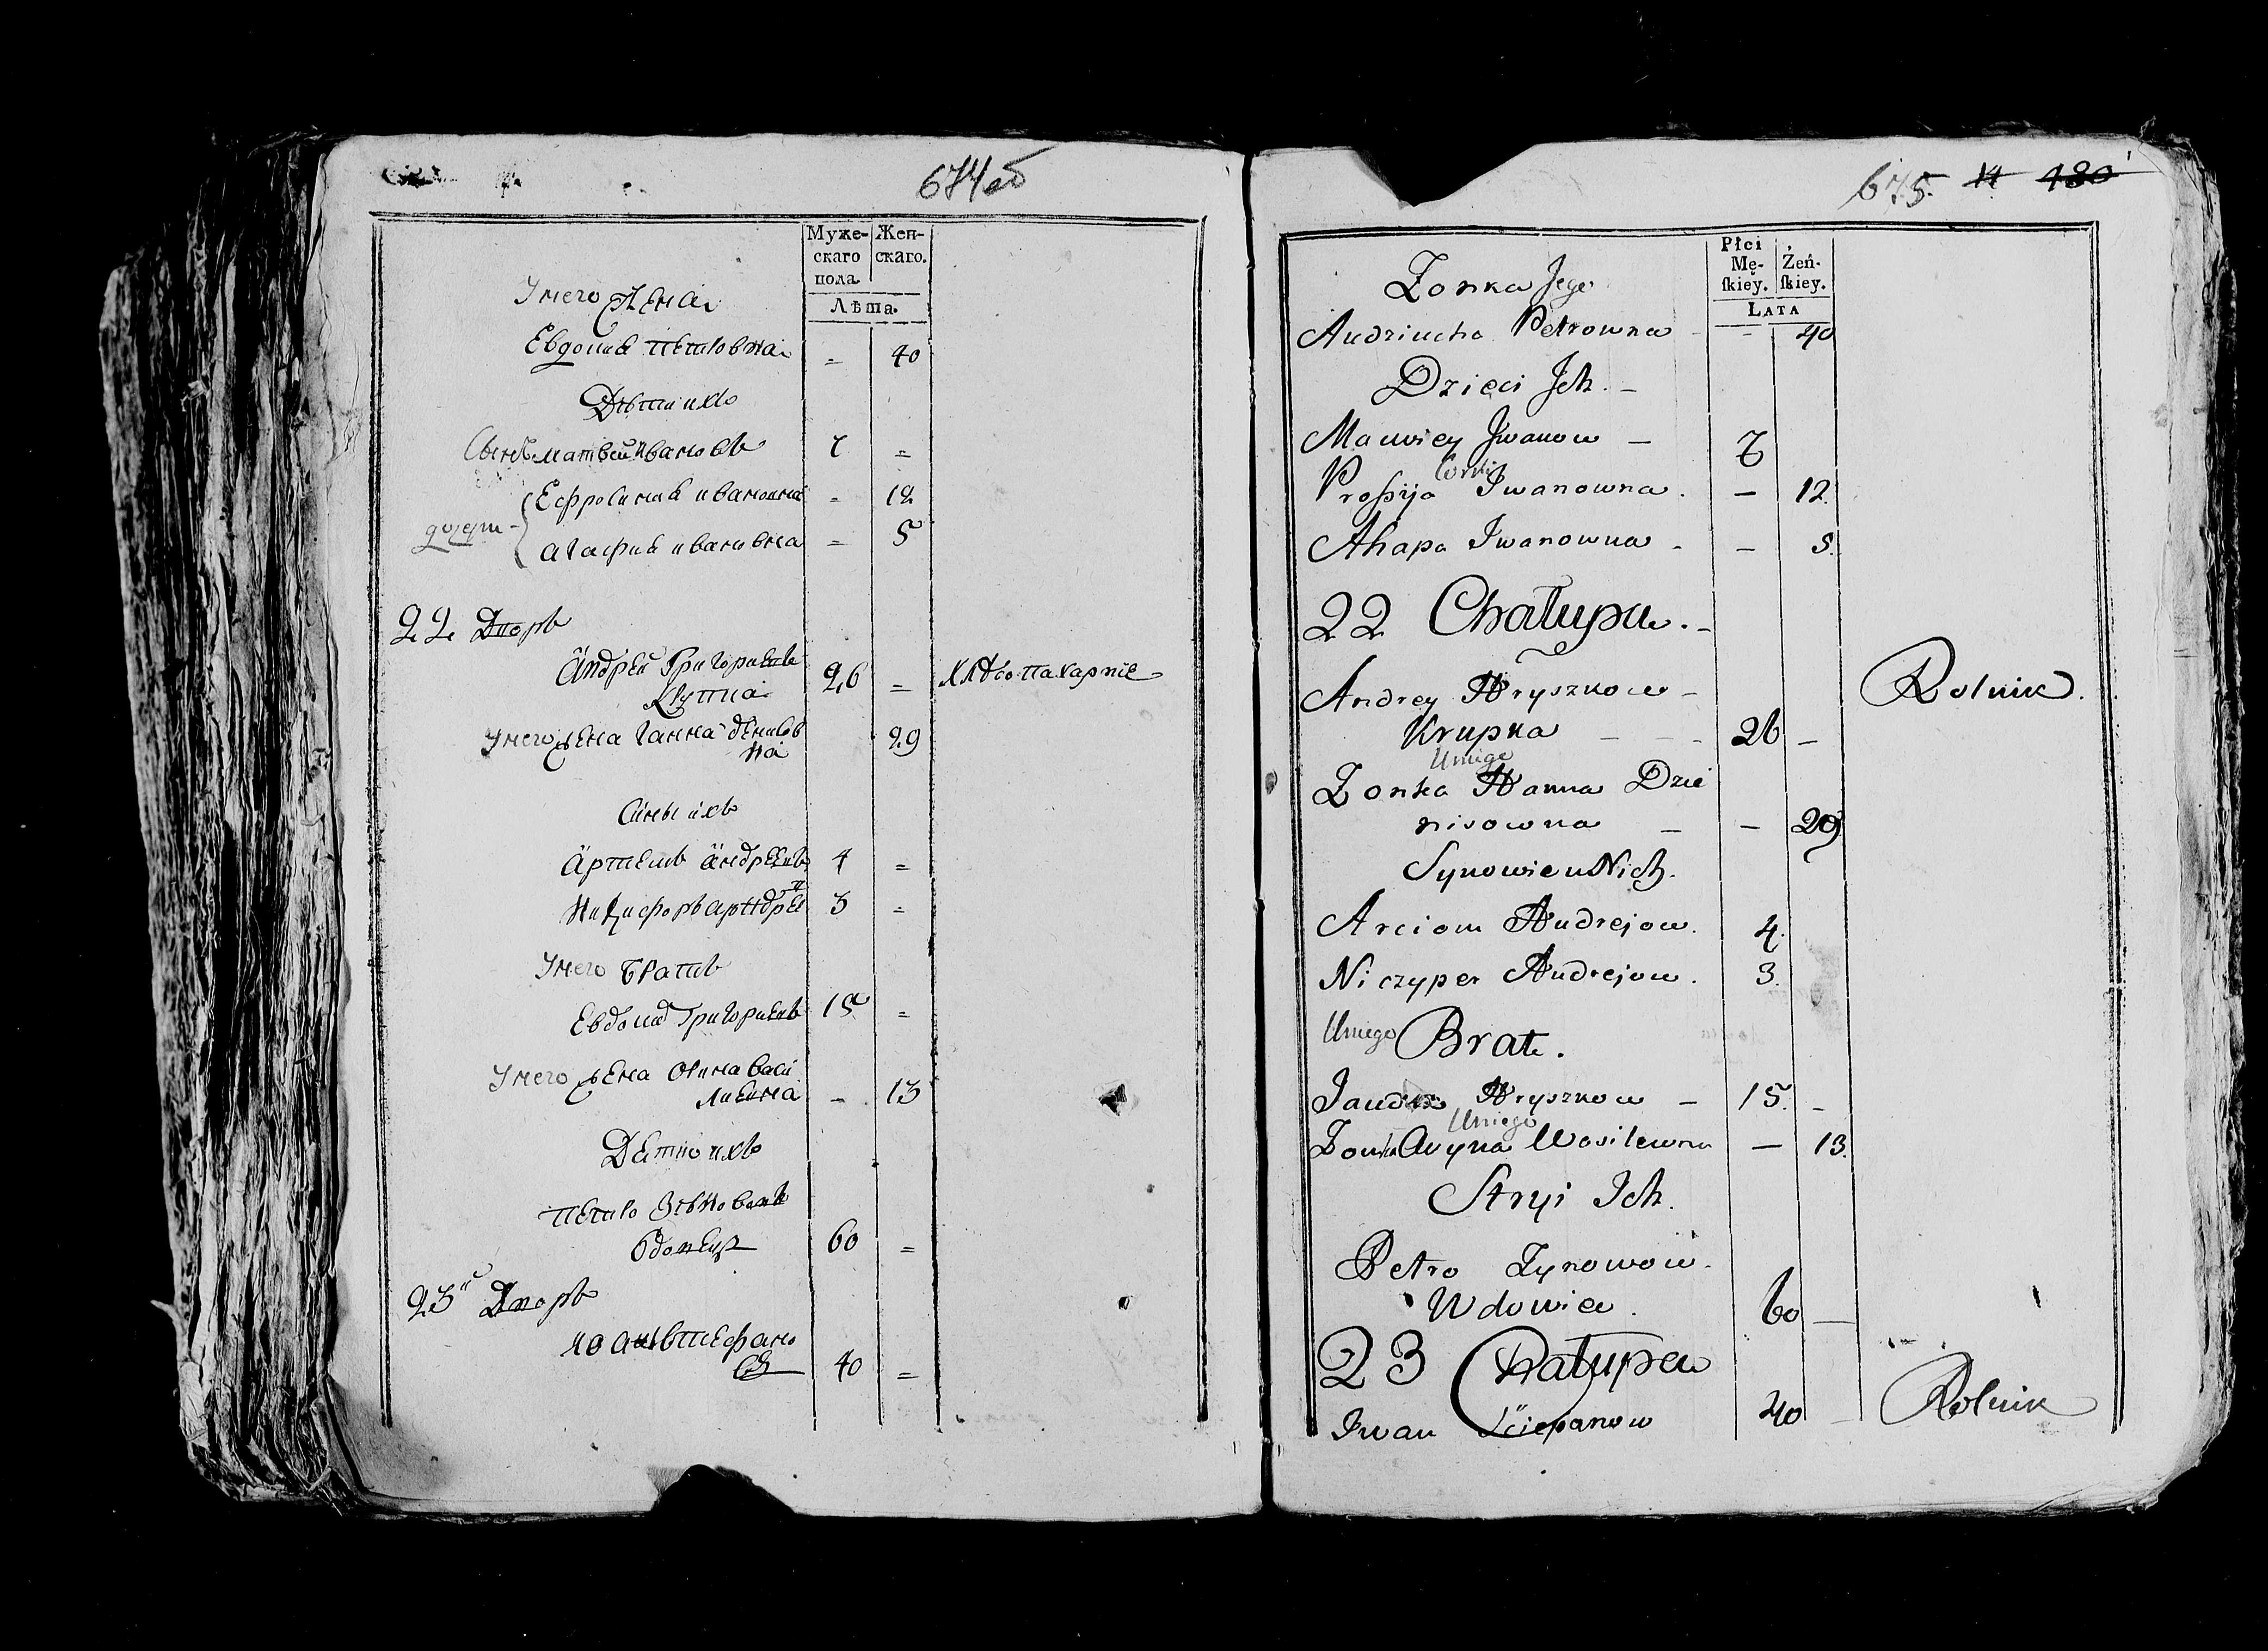 674об
Муже- Жен-
скаго скаго.
пола.
Лѣта.
У него жена
Евдокия Петровна = 40
Дѣти ихъ
Сынъ Матвей Ивановъ 7 =
Ефросиния Ивановна = 12
дочери
Агафия Ивановна = 5
22 Дворъ
Андрей Григориевъ
Крупка 26 = хлѣбопахарніе
У него жена Ганна Денисов
на 29
Сины ихъ
Артемъ Андреевъ 4 =
Никифоръ Андрее 3 =
У него братъ
Евдоким Григориевъ 15 =
У него жена Орина Васи
лиевна - 13
Петро Зѣновевъ
вдовецъ 60 =
23й Дворъ
Иоанъ Стефано
въ 40 =
675. 14 130
Płci
Mę- Żeń-
ſkiey. ſkiey.
Lata
Zonka Jego
Audziucha Petrowna - - 40
Dzieci Jch. -
Mauwiey Jwanow - 7
Corki
Profsija Iwanowna. - 12.
Ahapa Iwanowna - - 5.
22 Chałupa. -
Andrey Hryszkow - Rolnik.
Krupka - - - 26 -
Uniego
Zonka Hanna Dzie
nisowna - - 29
Synowie u Nich.
Arciom Andrejow. 4.
Niczyper Andrejow. 3.
Uniego Brat.
Hryszkow - 15. -
Uniego
Zonka Aryna Wasilewna - 13.
Stryi Ich.
Petro Zynowow.
Wdowiec. 60 -
23 Chałupa
Iwan Sciepanow 40 - Rolnik